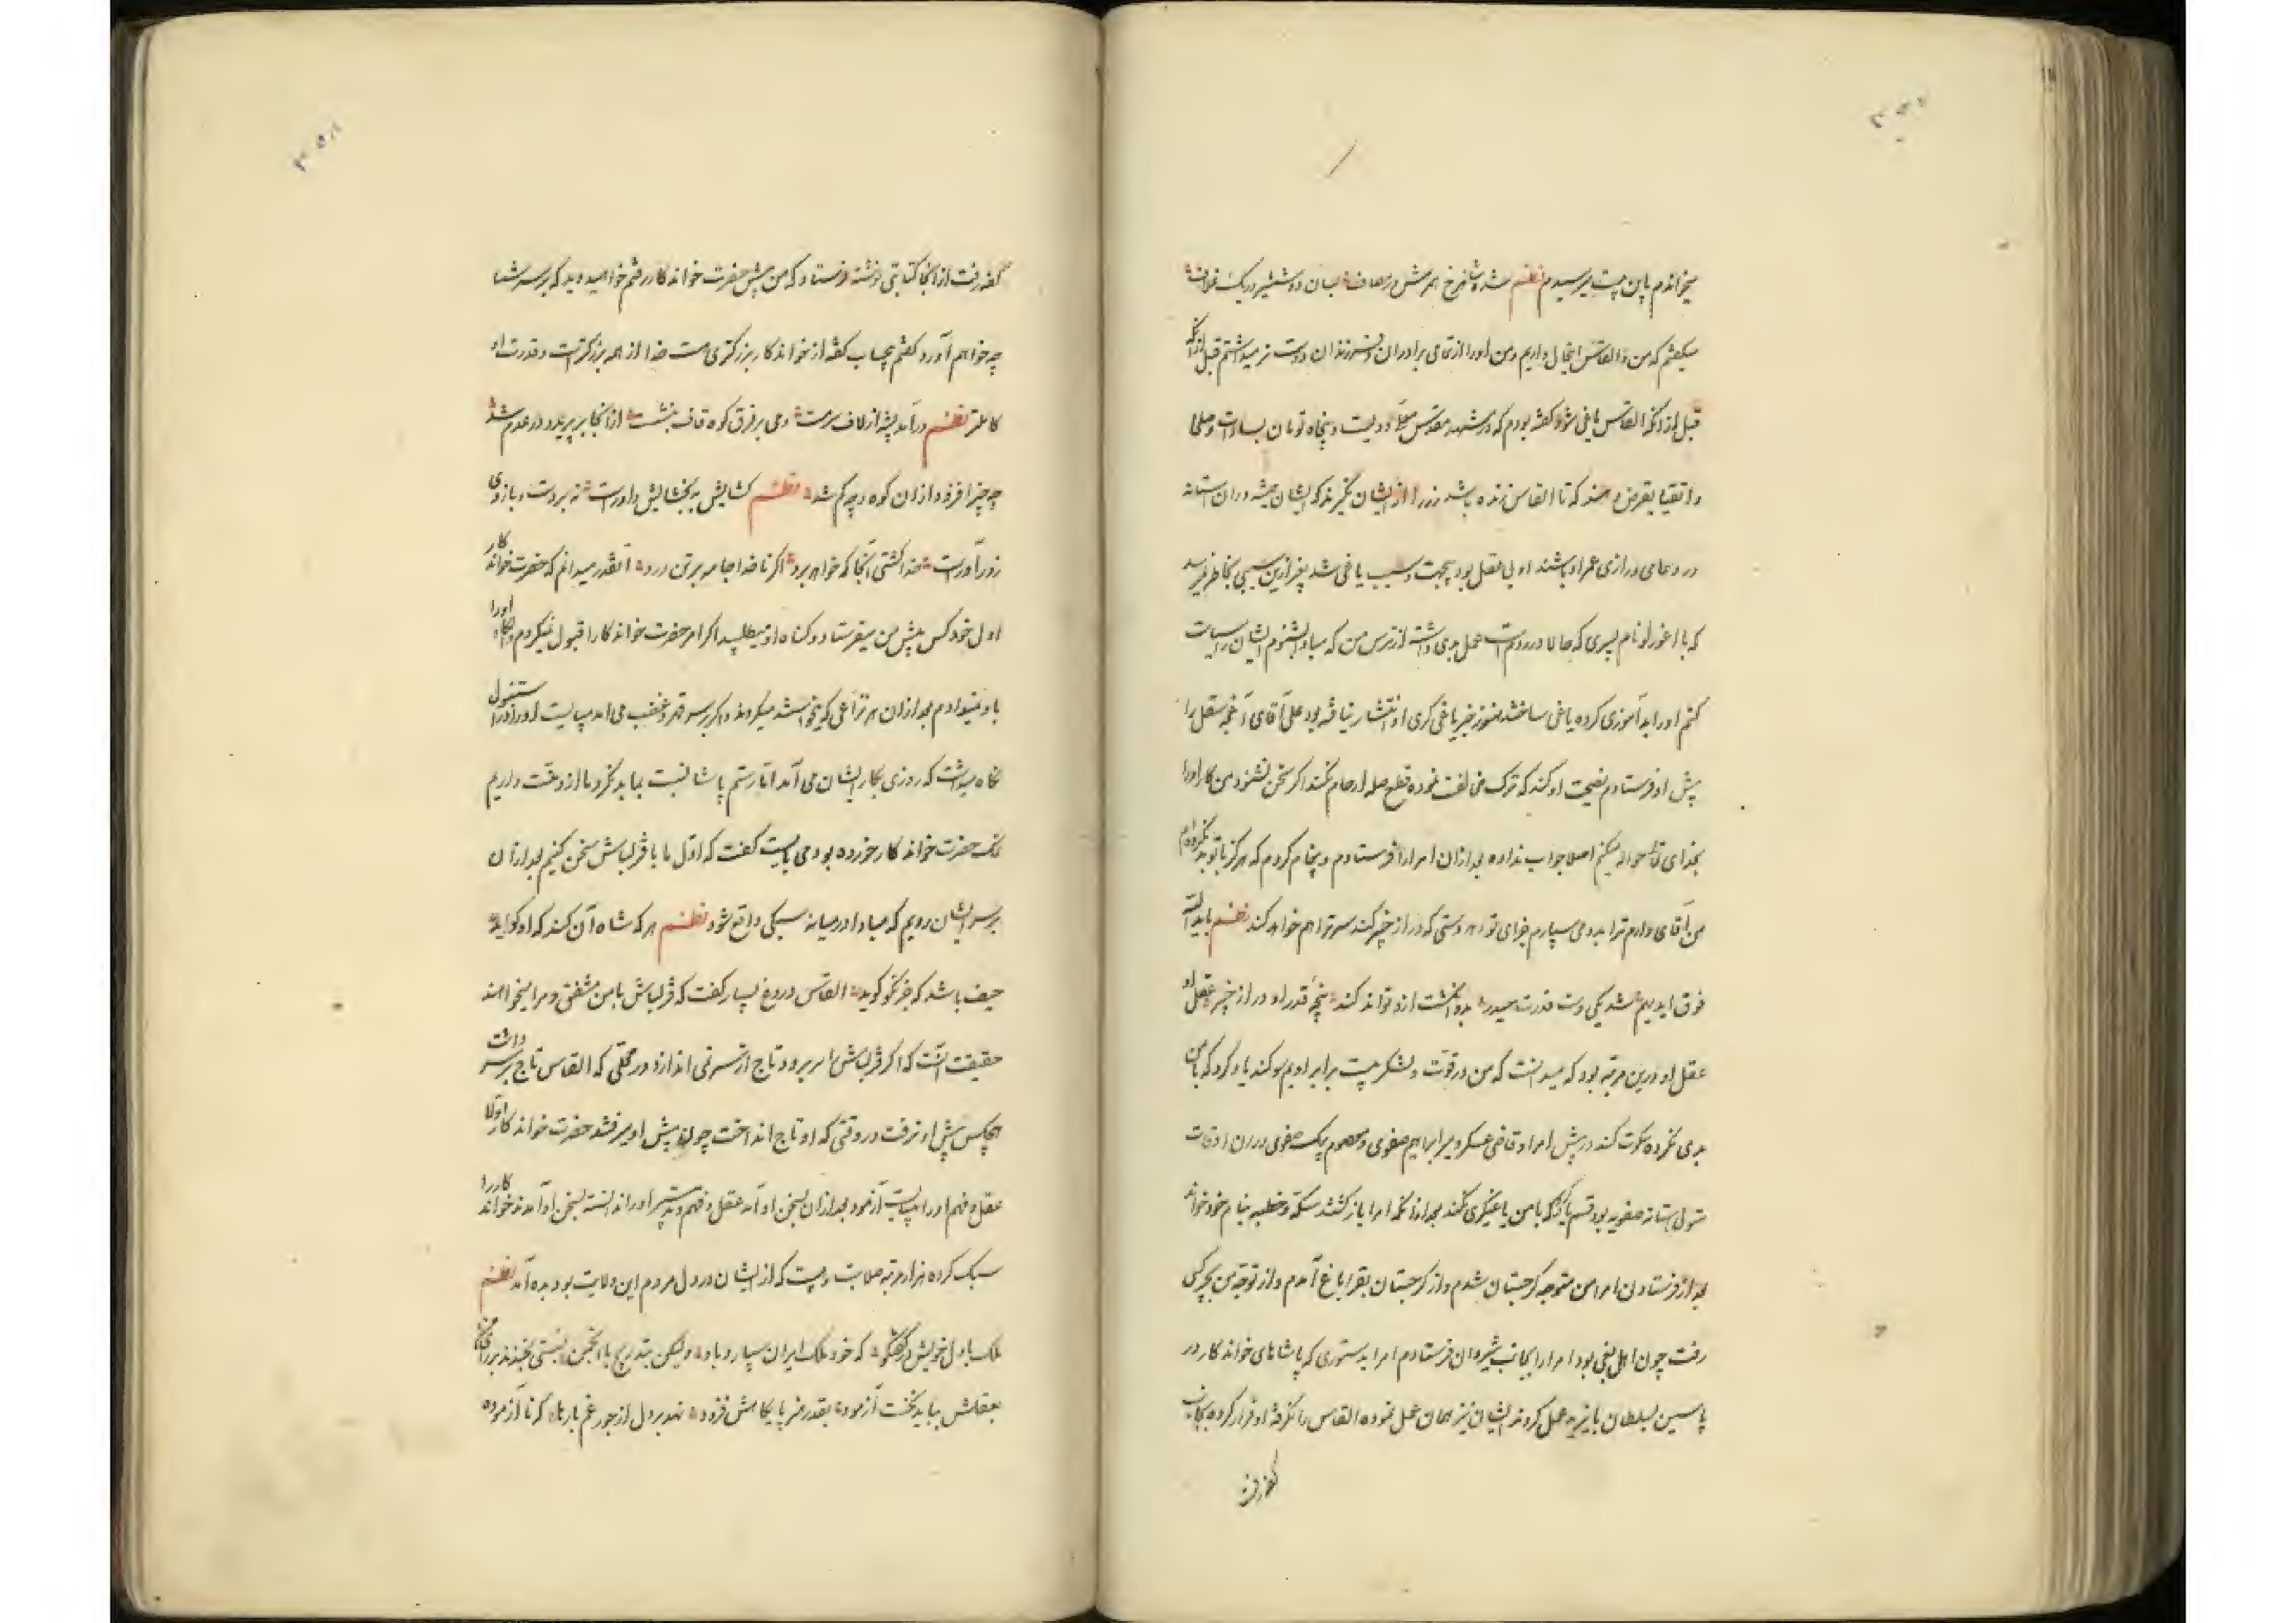 میخواندم باین بیت میرسیدم نظم شه و شاهرخ هرمش در مصاف بسان دو شمشیر در یک غلاف
میکفتم که من و القاس اینحال داریم و من او را از تمامی برادران و فرزندان دوست تر میداشتم قبل ازانکه
قبل ازانکه القاس یاغی شود کفته بودم که در مشهد مقدس معلی دویست و پنجاه تومان بسادات و صلحا
و اتقیا بقرض دهند که تا القاس زنده باشد زر را از ایشان نکیرند که ایشان همیشه دران استانه
در دعای درازی عمر او باشند او بی عقل بود بیجهت و سبب یاغی شد بغیر ازین سببی بخاطر نمیرسد
که با اغورلو نام پسری که حالا در روم است عمل بدی داشته از ترس من که مبادا بشنوم ایشان را سیاست
کنم او را بد آموزی کرده یاغی ساختند هنوز خبر یاغی کری او انتشار نیافته بود علی آقای آقچه سقل را
پیش او فرستادم نصیحت او کند که ترک مخالفت نموده قطع صله ارحام نکند اکر سخن نشنود من کار او را
بخدای تعالی حواله میکنم اصلا جواب نداده بعد ازان امرا را فرستادم و پیغام کردم که هرکز با تو بد نکرده‌ام
من آقای دارم ترا بدو می سپارم جزای تو دهد دستی که دراز خیبر کند سر ترا هم خواهد کند نظم ید الله
فوق ایدیهم شد یکی دست قدرت حیدر به دو انکشت ازو تواند کند پنجه قدر او در از خیبر عقل او
عقل او درین مرتبه بود که میدانست که من در قوت و لشکر بیست برابر اویم سوکند یاد کرد که با من
بدی نکرده سکوت کند در پیش امرا و قاضی عسکر و میر ابراهیم صفوی و معصوم بیک صفوی دران اوقات
متولی آستانه صفویه بود قسم یاد کرد که با من یاغیکری نکند بعد ازانکه امرا باز کشتند سکه و خطبه بنام خود خواند
بعد از فرستادن امرا من متوجه کرجستان شدم و از کرجستان بقراباغ آمدم و او از توجه من بچرکس
رفت چون اهل بغی بود امرا را بجانب شیروان فرستادم امرا بدستوری که پاشاهای خواندکار در
یاسین بسلطان بایزید عمل کردند ایشان نیز همان عمل نموده القاس را نکرفته او فرار کرده بجانب
کفه رفت
کفه رفت از آنجا کتابتی نوشته فرستاد که من پیش حضرت خواندکار رفتم خواهید دید که بر سر شما
چه خواهم آورد کفتم بچساب کفه از خواندکار بزرکتری هست خدا از همه بزرکترست و قدرت او
کاملتر نظم درآمد پشه از لاف سرمست دمی بر فرق کوه قاف بنشست ازانجا بر پرید و در عدم شد
چه چیز افزود ازان کوه و چه کم شد نظم کشایش به بخشایش داورست نه بر دست و بازوی
زورآورست خدا کشتی آنجا که خواهد برد اکر ناخدا جامه بر تن درد آنقدر میدانم که حضرت خواندکار
اول خود کس پیش من میفرستاد و کناه او میطلبید اکر امر حضرت خواندکار را قبول نمیکردم و او را
باو نمیدادم بعد ازان هر نزاعی که میخواستند میکردند و اکر بر سر قهر و غضب می آمد میبایست او را
نکاه میداشت که روزی بکار ایشان می آمد اما رستم پاشا نسبت بما بد نکرد ما ازو منت داریم
نمک حضرت خواندکار خورده بود می بایست کفت که اول ما با قزلباش سخن کنیم بعد ازان
بر سر ایشان رویم که مبادا در میانه سبکی واقع شود نظم هر که شاه آن کند که او کوید
حیف باشد که جز نکو کوید القاس دروغ بسیار کفت که قزلباش با من متفق و مرا میخواهند
حقیقت آنست که اکر قزلباش را سر برود تاج از سر نمی اندازد در محلی که القاس تاج بر سر داشت
هیچکس پیش او نرفت در وقتی که او تاج انداخت چون پیش او میرفتند حضرت خواندکار اولا
عقل و فهم او را میبایست آزمود بعد ازان بسخن او آمد عقل و فهم و تدبیر او را ندانسته بسخن او آمدند خواندکار را
سبک کرده هزار مرتبه صلابت و هیبت که از ایشان در دل مردم این ولایت بود بده آمد نظم
ملک با دل خویش در کفتکو که خود ملک ایران سپارد باو ولیکن بتدریج با انجمن بسستی نخندند بر رای من
بعقلش بباید نخست آزمود بقدر هنر پایکاهش فزود نهد بر دل از جور غم بارها که ناآزموده